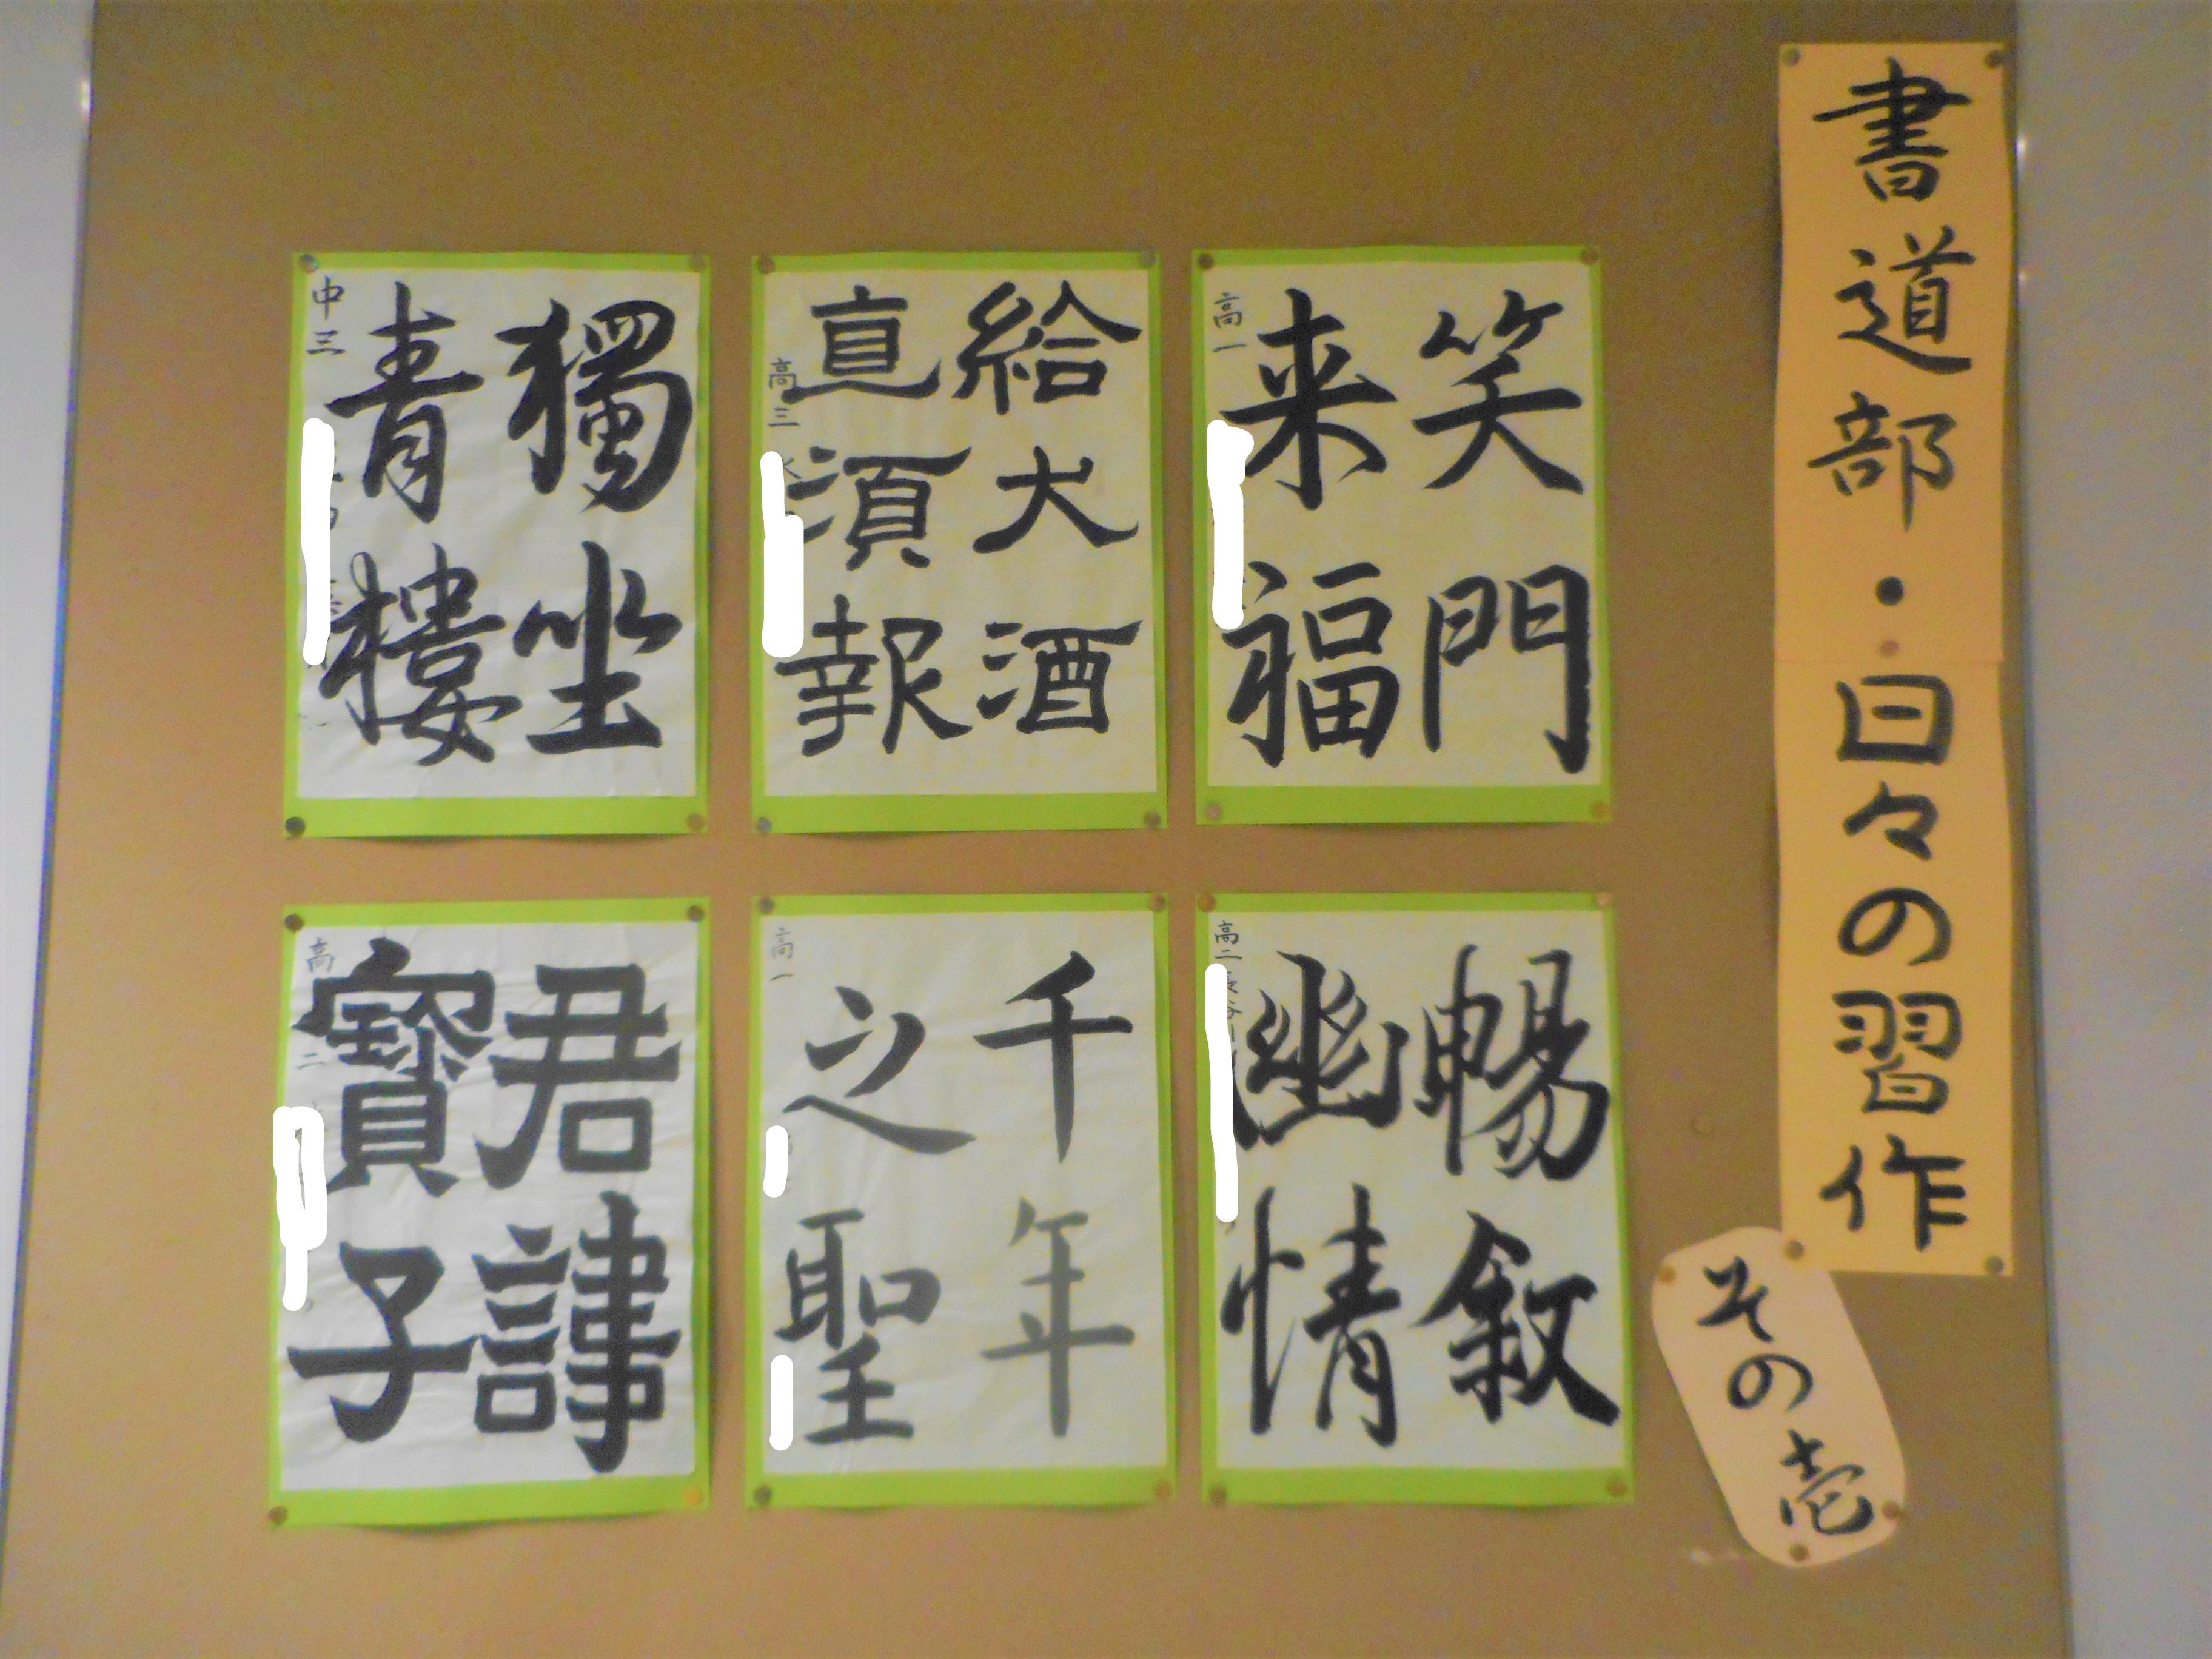 書道部・日々の習作
その壱
笑門
来福
高一
給犬酒
直須報
高三
獨坐
青樓
中三
暢叙
幽情
高二
千年
之聖
高一
君諱
寶子
高二